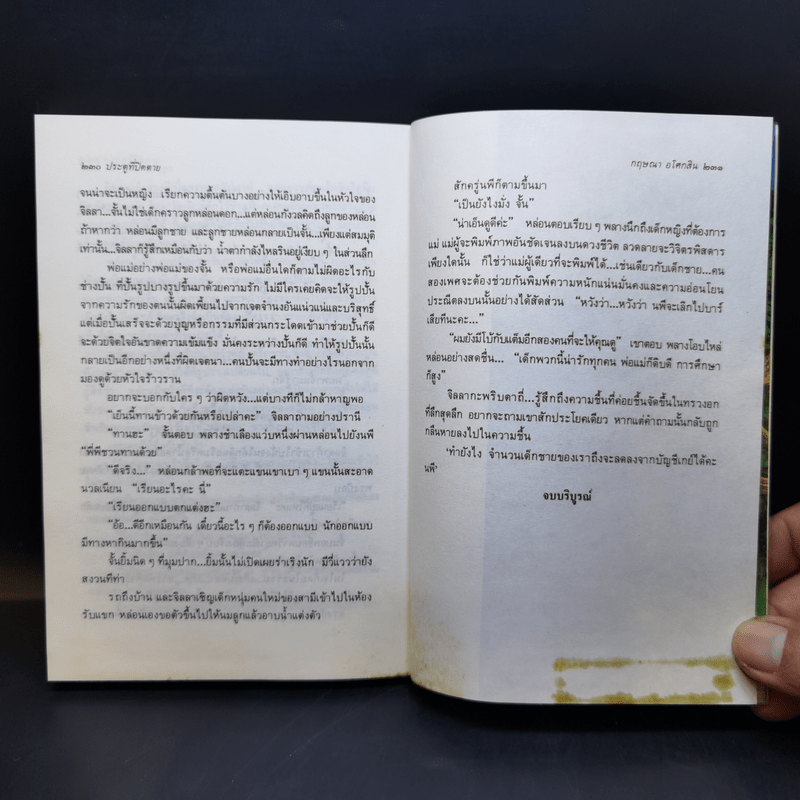 ๒๓๐ ประตูที่ปิดตาย
จนน่าจะเป็นหญิง เรียกความตื้นตันบางอย่างให้เอิบอาบขึ้นในหัวใจของ
จิลลา...จั้นไม่ใช่เด็กคราวลูกหล่อนดอก...แต่หล่อนกังวลคิดถึงลูกของหล่อน
ถ้าหากว่า หล่อนมีลูกชาย และลูกชายหล่อนกลายเป็นจั้น...เพียงแต่สมมุติ
เท่านั้น...จิลลาก็รู้สึกเหมือนกับว่า น้ำตากำลังไหลรินอยู่เงียบ ๆ ในส่วนลึก
พ่อแม่อย่างพ่อแม่ของจั้น หรือพ่อแม่อื่นใดก็ตามไม่ผิดอะไรกับ
ช่างปั้น ที่ปั้นรูปบางรูปขึ้นมาด้วยความรัก ไม่มีใครเคยคิดจะให้รูปปั้น
จากความรักของตนนั้นผิดเพี้ยนไปจากเจตจำนงอันแน่วแน่และบริสุทธิ์
แต่เมื่อปั้นเสร็จจะด้วยบุญหรือกรรมที่มีส่วนกระโดดเข้ามาช่วยปั้นก็ดี
จะด้วยจิตใจอันขาดความเข้มแข็ง มั่นคงระหว่างปั้นก็ดี ทำให้รูปปั้นนั้น
กลายเป็นอีกอย่างหนึ่งที่ผิดเจตนา...คนปั้นจะมีทางทำอย่างไรนอกจาก
มองดูด้วยหัวใจร้าวราน
อยากจะบอกกับใคร ๆ ว่าผิดหวัง...แต่บางทีก็ไม่กล้าหาญพอ
“เย็นนี้ทานข้าวด้วยกันหรือเปล่าคะ” จิลลาถามอย่างปรานี
“ทานฮะ” จั้นตอบ พลางชำเลืองแว่บหนึ่งผ่านหล่อนไปยังนพี
“พี่พีชวนทานด้วย”
“ดีจริง...” หล่อนกล้าพอที่จะแตะแขนเขาเบา ๆ แขนนั้นสะอาด
นวลเนียน “เรียนอะไรคะ นี่”
“เรียนออกแบบตกแต่งฮะ”
“อ้อ...ดีอีกเหมือนกัน เดี๋ยวนี้อะไร ๆ ก็ต้องออกแบบ นักออกแบบ
มีทางหากินมากขึ้น”
จั้นยิ้มนิด ๆ ที่มุมปาก...ยิ้มนั้นไม่เปิดเผยร่าเริงนัก มีวี่แววว่ายัง
สงวนทีท่า
รถถึงบ้าน และจิลลาเชิญเด็กหนุ่มคนใหม่ของสามีเข้าไปในห้อง
รับแขก หล่อนเองขอตัวขึ้นไปให้นมลูกแล้วอาบน้ำแต่งตัว
กฤษณา อโศกสิน ๒๓๑
สักครู่นพีก็ตามขึ้นมา
“เป็นยังไงมั่ง จั้น”
“น่าเอ็นดูดีค่ะ” หล่อนตอบเรียบ ๆ พลางนึกถึงเด็กหญิงที่ต้องการ
แม่ แม่ผู้จะพิมพ์ภาพอันชัดเจนลงบนดวงชีวิต ลวดลายจะวิจิตรพิสดาร
เพียงใดนั้น ก็ใช่ว่าแม่ผู้เดียวที่จะพิมพ์ได้...เช่นเดียวกับเด็กชาย...คน
สองเพศจะต้องช่วยกันพิมพ์ความหนักแน่นมั่นคงและความอ่อนโยน
ประณีตลงบนนั้นอย่างได้สัดส่วน “หวังว่า...หวังว่า นพีจะเลิกไปบาร์
เสียทีนะคะ...”
“ผมยังมีโบ้กับแต็มอีกสองคนที่จะให้คุณดู” เขาตอบ พลางโอบไหล่
หล่อนอย่างสดชื่น... “เด็กพวกนี้น่ารักทุกคน พ่อแม่ก็ดิบดี การศึกษา
ก็สูง”
จิลลากะพริบตาถี่...รู้สึกถึงความชื้นที่ค่อยชื้นจัดขึ้นในทรวงอก
ที่ลึกสุดลึก อยากจะถามเขาสักประโยคเดียว หากแต่คำถามนั้นกลับถูก
กลืนหายลงไปในความชื้น
‘ทำยังไง จำนวนเด็กชายของเราถึงจะลดลงจากบัญชีเกย์ได้คะ
นพี’
จบบริบูรณ์